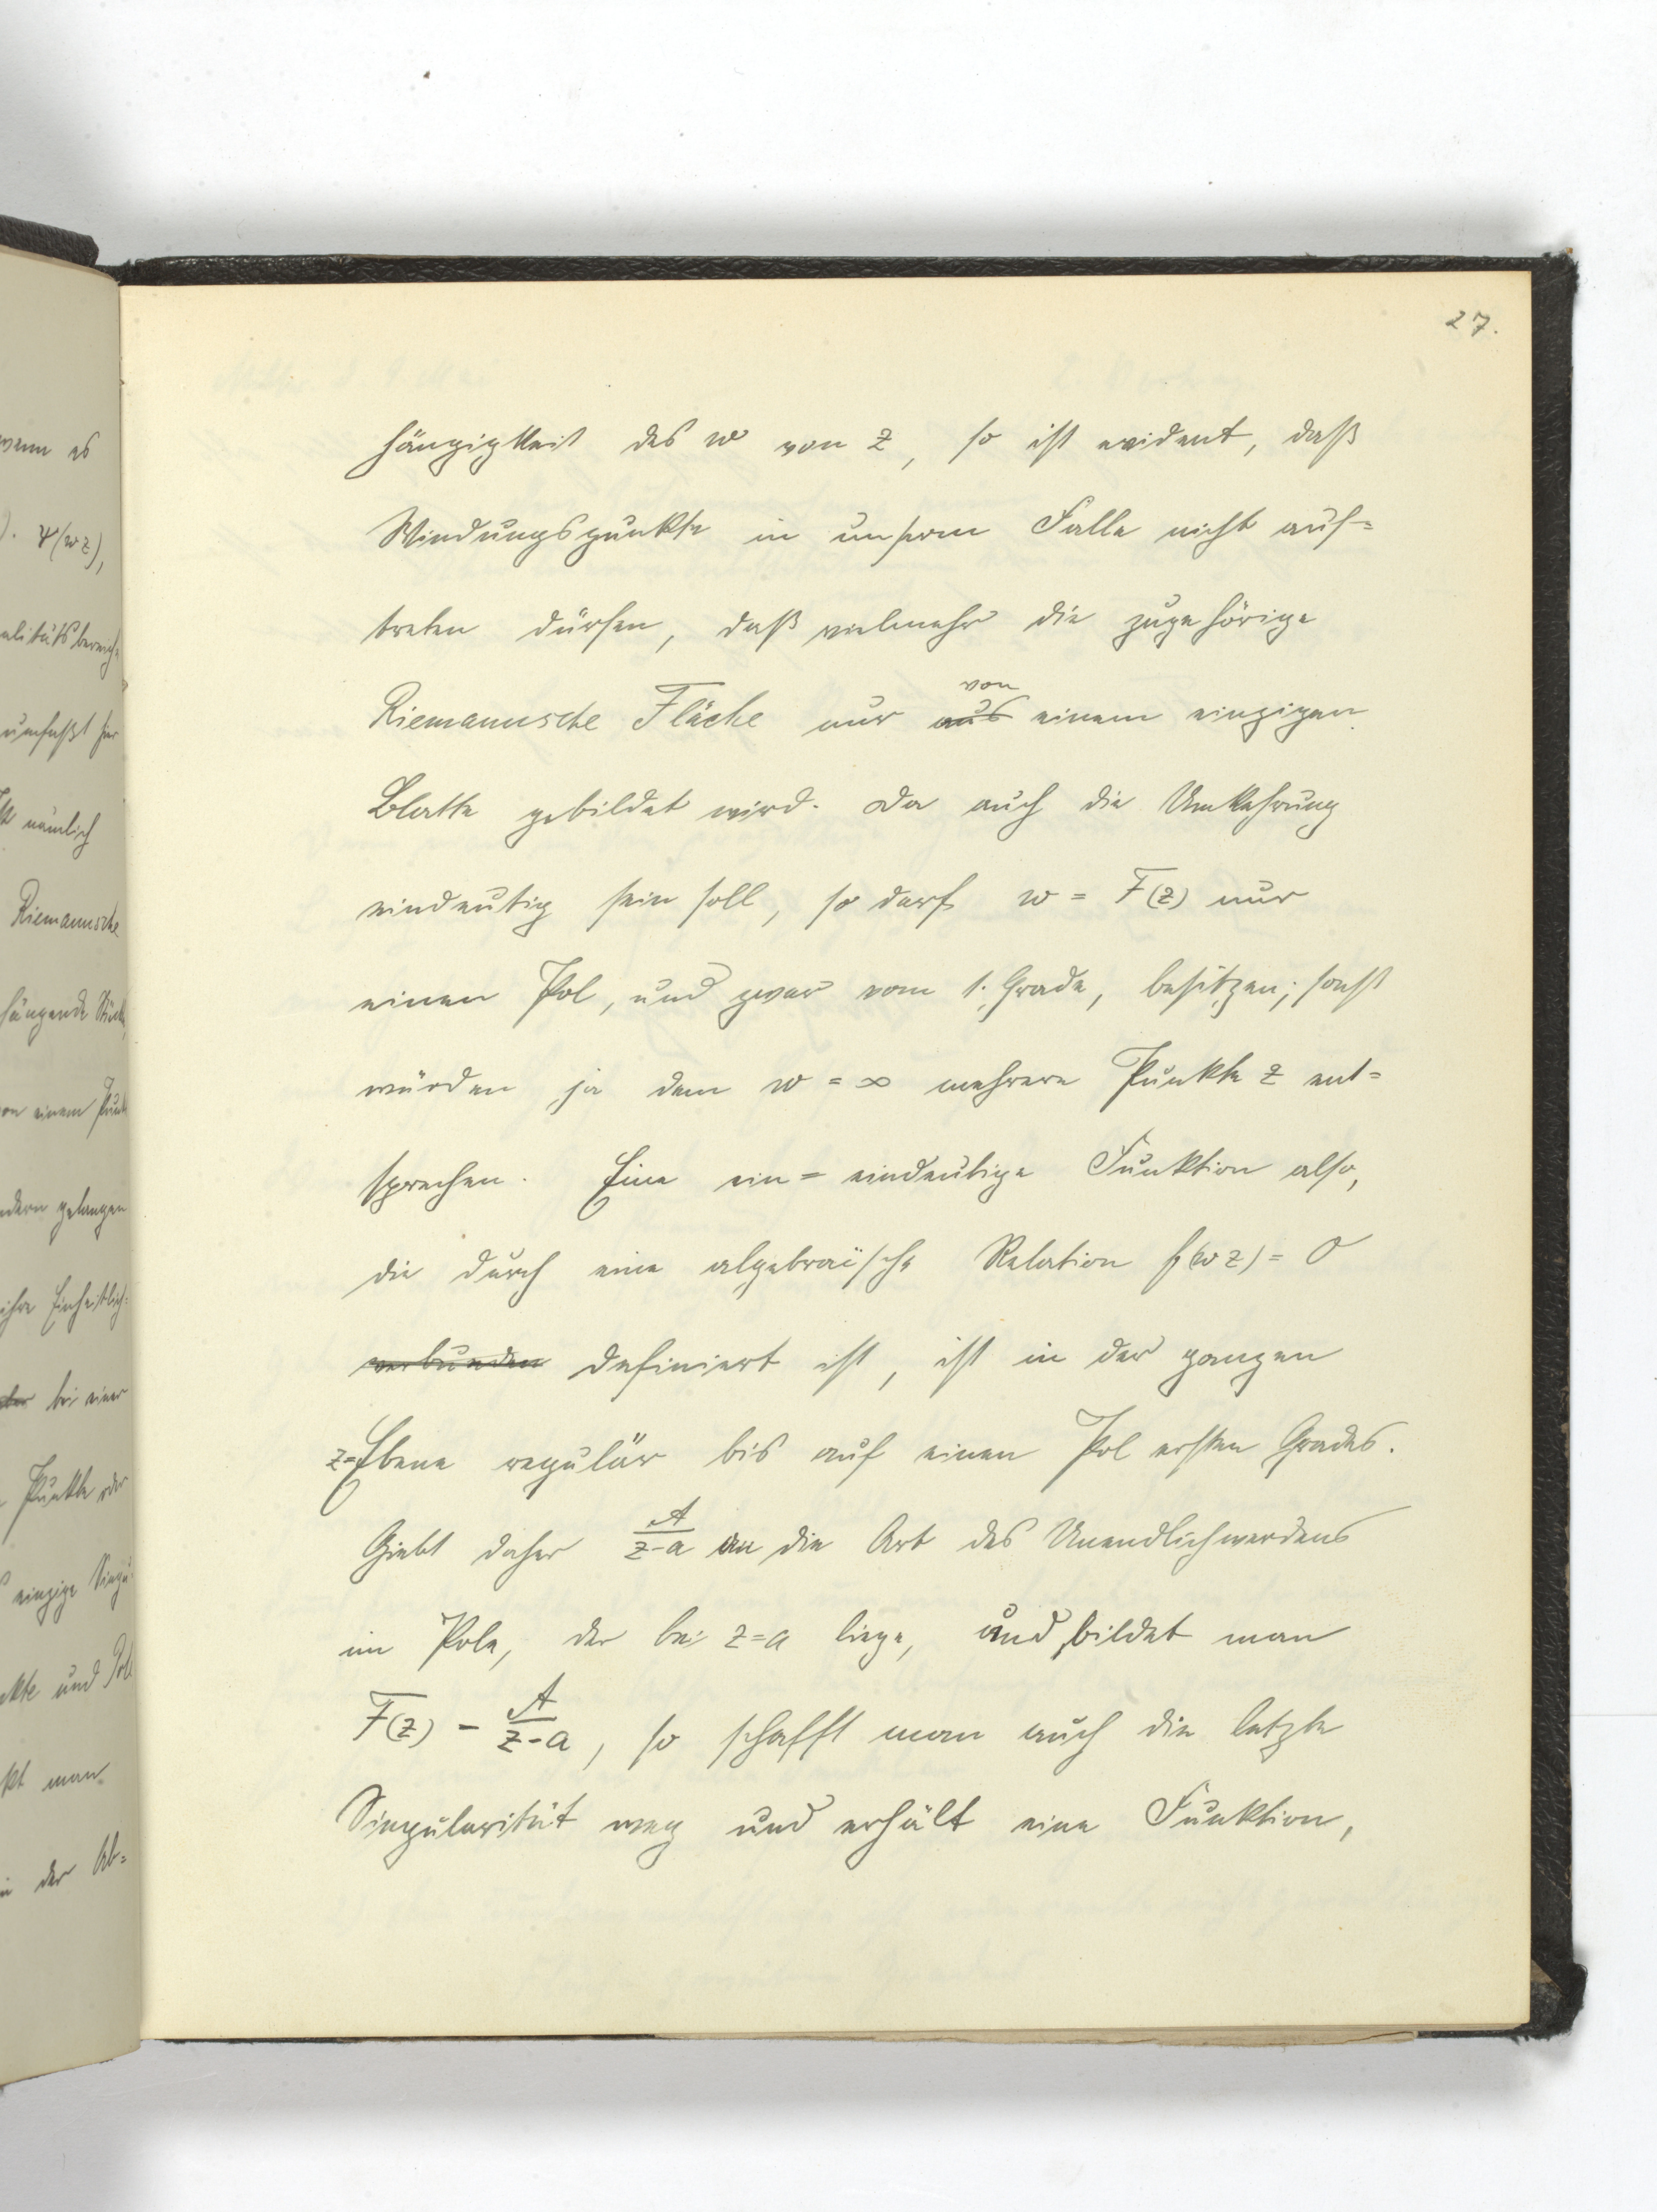 27.
hängigkeit des w von z, so ist evident, daß
Windungspunkte in unserm Falle nicht auf=
treten dürfen, daß vielmehr die zugehörige
Riemannsche Fläche nur aus von einem einzigen
Blatte gebildet wird. Da auch die Umkehrung
eindeutig sein soll, so darf w = F(z) nur
einen Pol, und zwar vom 1. Grade, besitzen; sonst
würden ja dem w = ∞ mehrere Punkte z ent=
sprechen. Eine ein=eindeutige Funktion also,
die durch eine algebraïsche Relation f(w z) = 0
verbunden definiert ist, ist in der ganzen
z=Ebene regulär bis auf einen Pol ersten Grades.
Giebt daher A/(z-a) an die Art des Unendlichwerdens
im Pole, der bei z=a liege, und bildet man
F(z) - A/(z-a), so schafft man auch die letzte
Singularität weg und erhält eine Funktion,
wenn es
ψ(w z),
umfaßt
nämlich
Riemannsche
hängende
von einem
gelangen
ihre Einheitlich=
bei einer
Punkte oder
einzige
und
man
in der Ab=